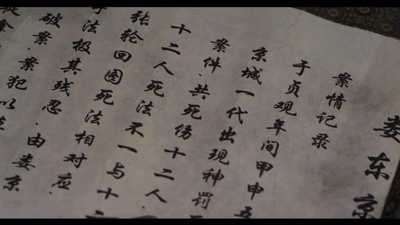 娄东京
案情记录
于贞观年间甲申五
京城一代出现神罚
案件.共死伤十二人.
十二人死法不一与十二
转轮回图死法相对应.
手法极其残忍.由娄京
破案.案犯以